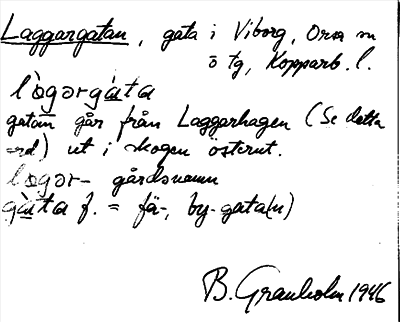 Laggargatan, gata i Viborg, Orsa sn
ö tg, Kopparb. l.
lògərgàta
gatan går från Laggarhagen (Se detta
ord) ut i skogen österut.
logər- gårdsnamn
gàta f. = fä-, by-gata(n)
B. Granholm 1946